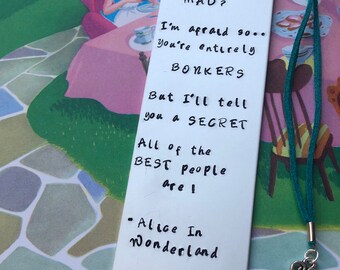 MAD?
I'm afraid so--
you're entirely
BONKERS
But I'll tell
you a SECRET
All of the
BEST people
are!
- Alice In
Wonderland